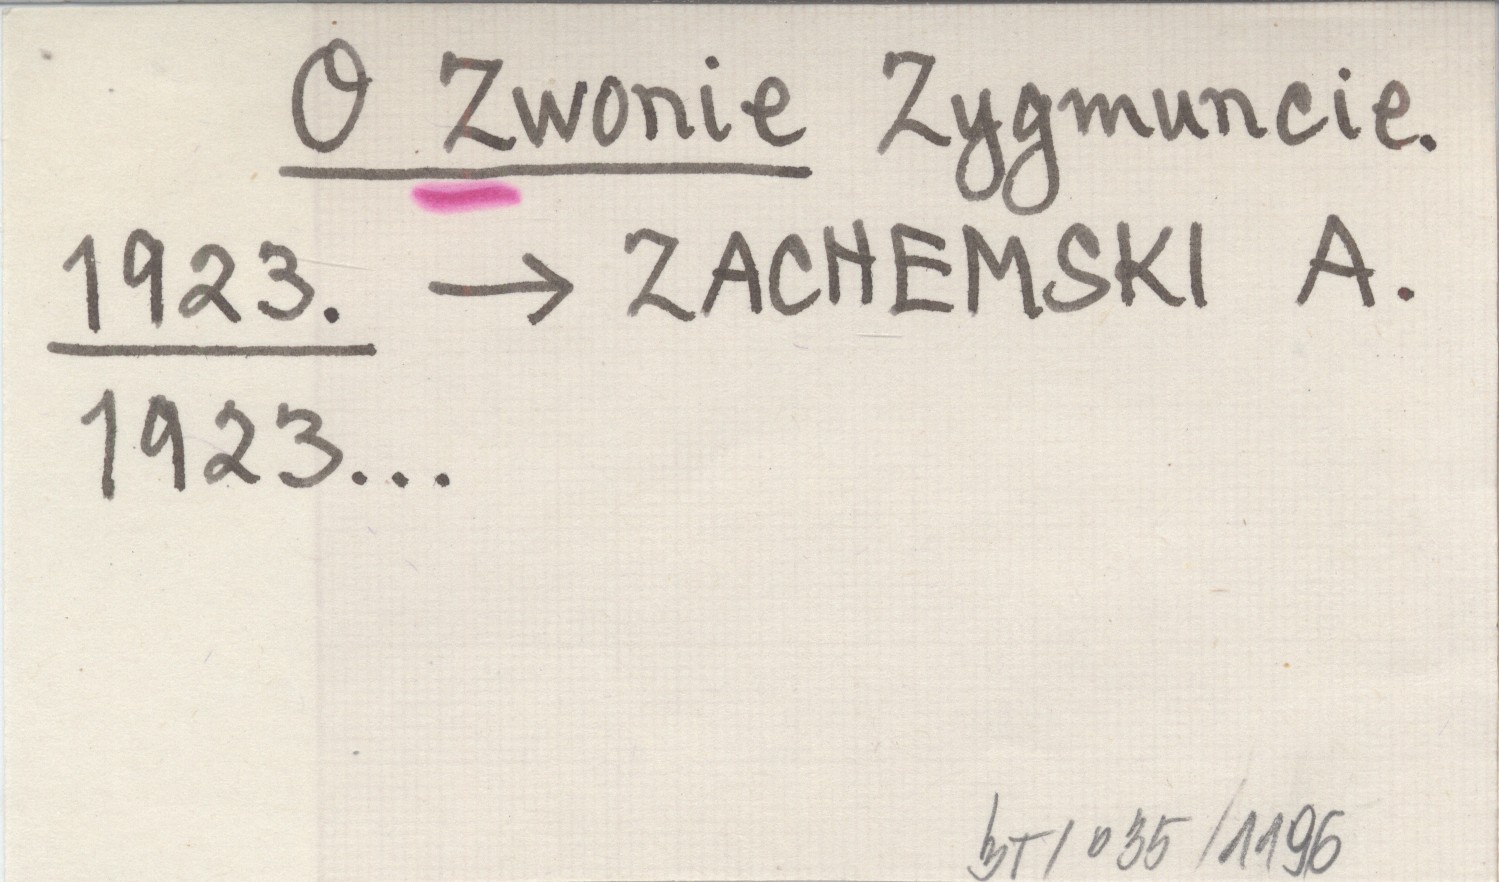 O Zwonie Zygmuncie.
1923. → ZACHEMSKI A.
1923...
BT/035/1196